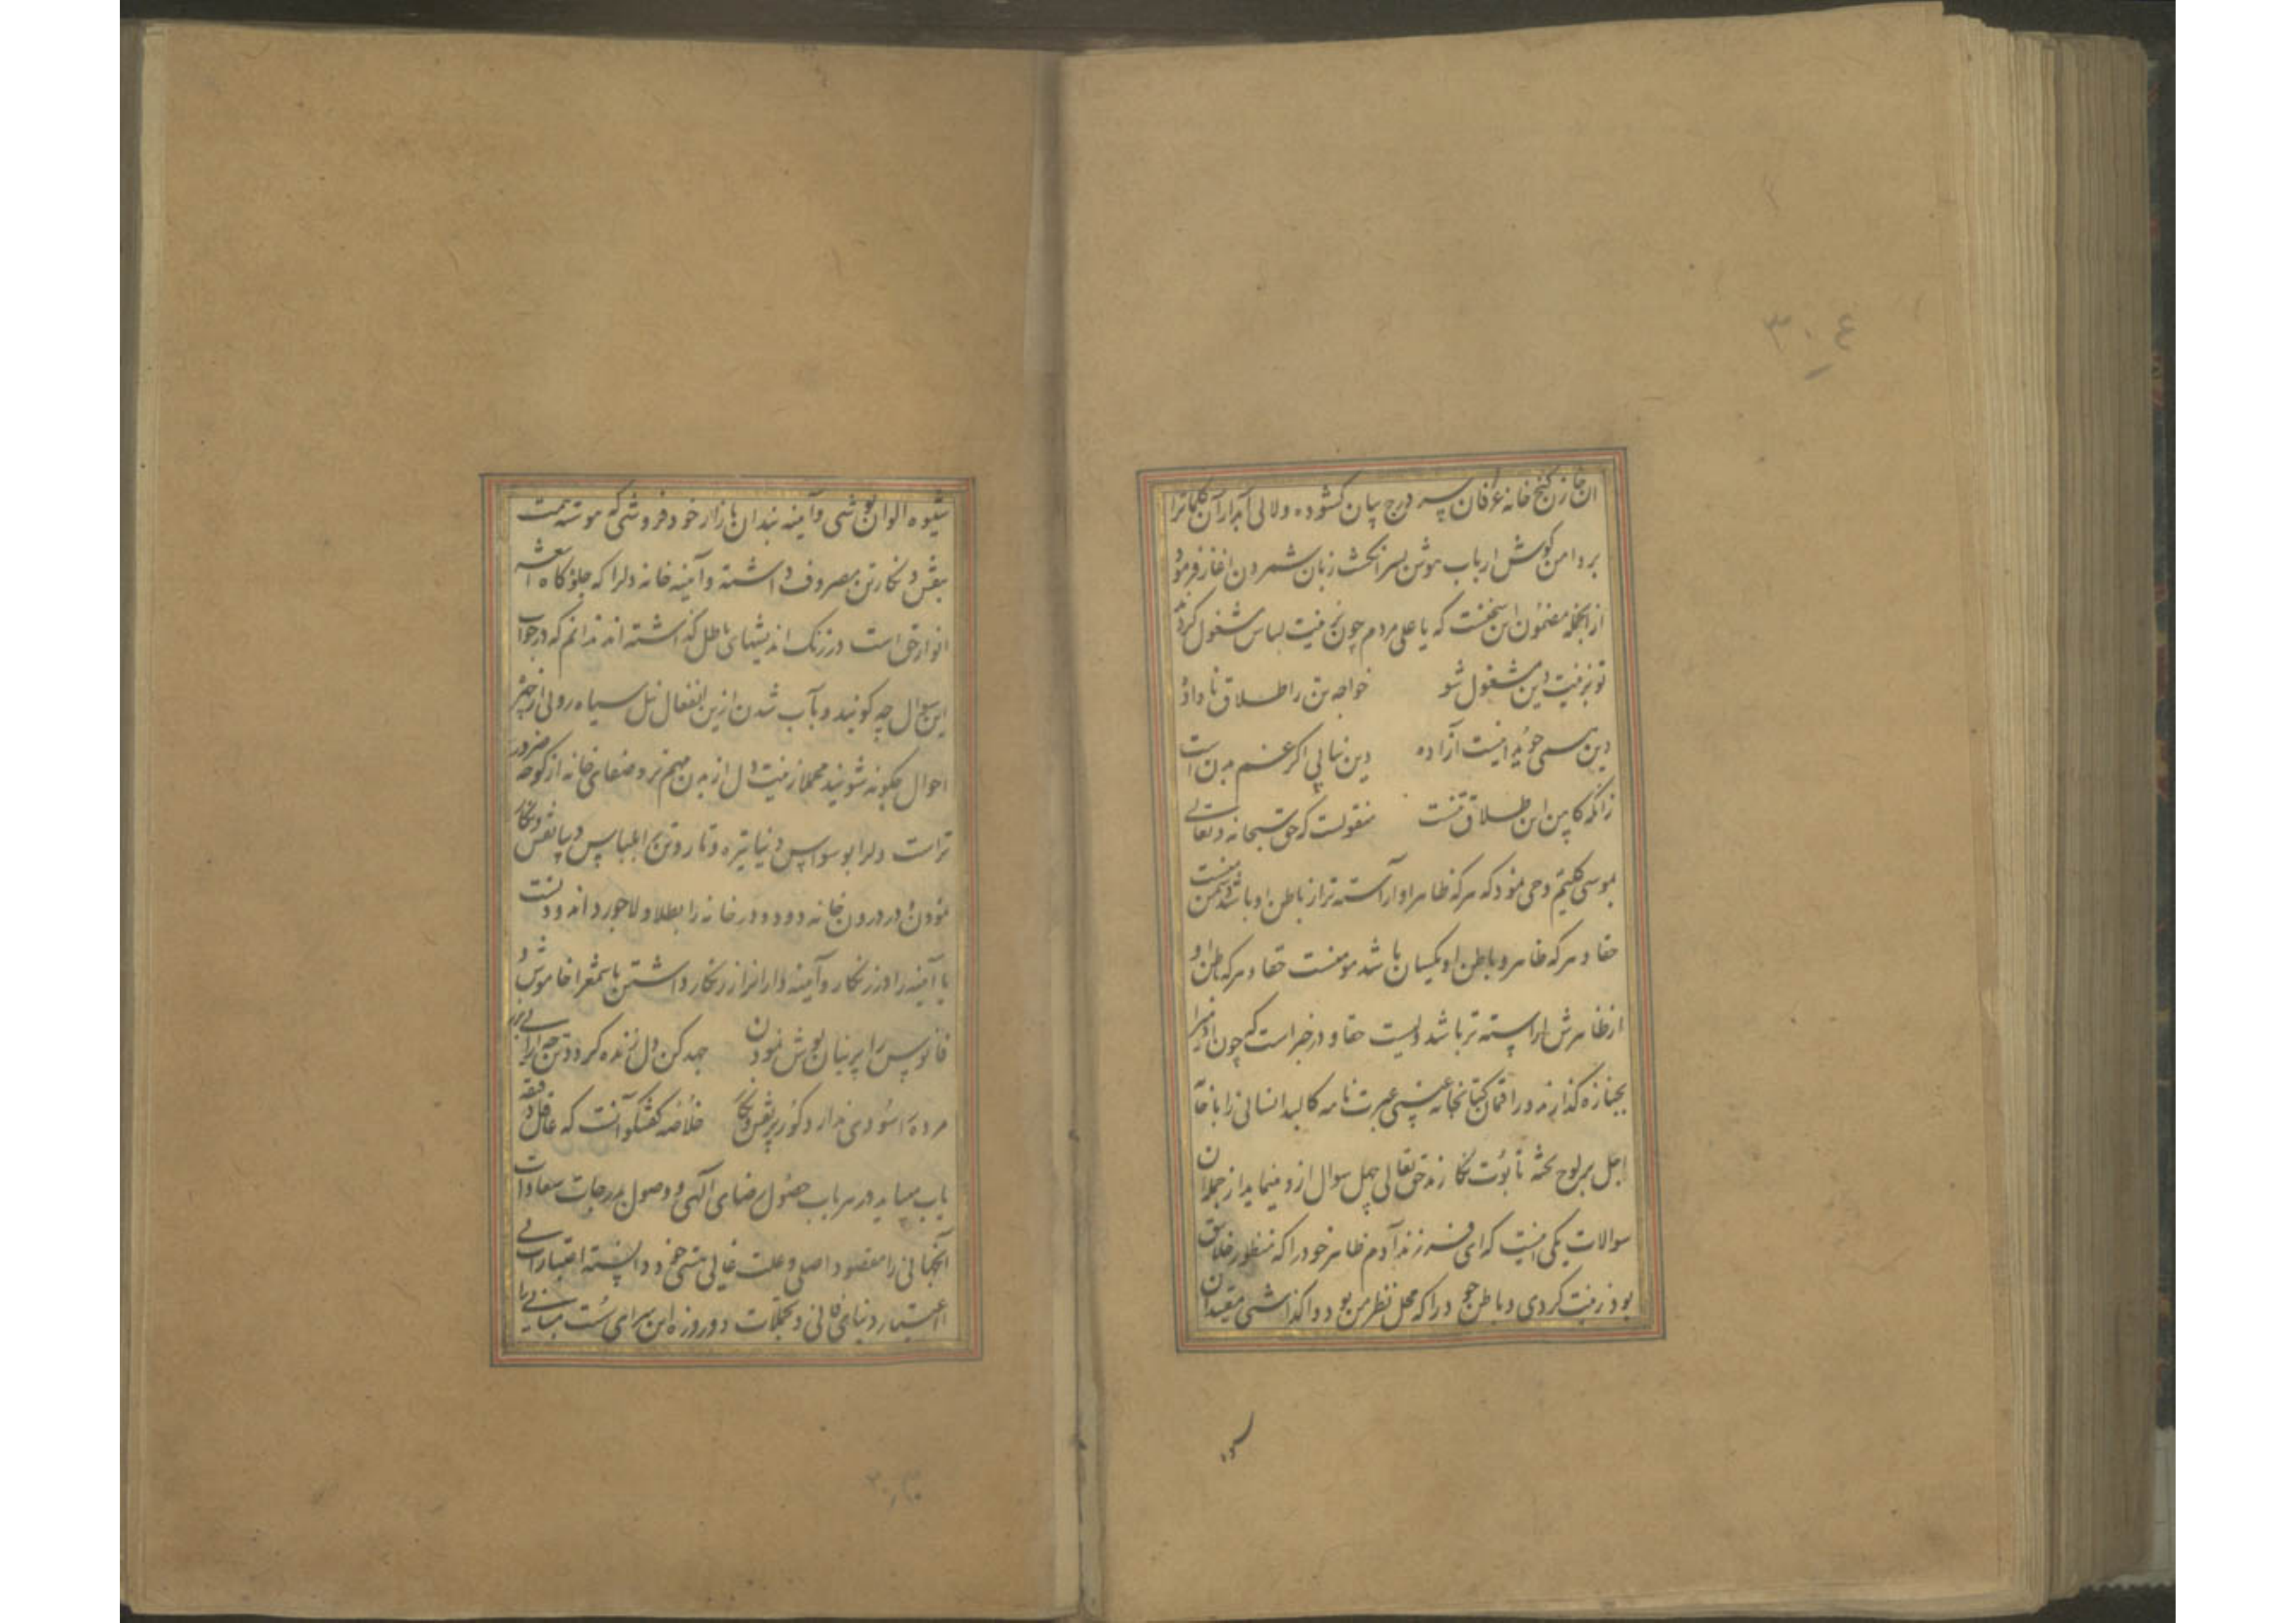 ان خازن گنج خانه عرفان سر درج بیان گشوده و لالی آبدار آن کلماترا
بر دامن گوش ارباب هوش بسرانگشت زبان شمردن اغاز فرمود
از انجمله مضمون این سخنست که یا علی مردم چون بزینت لباس مشغول گردند
تو بزینت دین مشغول شو خواجه تن را طلاق نا داده
دین نیابی اگر غم بدن است
زانکه کابین این طلاق تنست منقولست که حق سبحانه و تعالی
بموسی کلیم وحی نمود که هر که ظاهر او آراسته تر از باطن او باشد دشمن منست
حقا و هر که ظاهر و باطن او یکسان باشد مومنست حقا و هر که باطن او
از ظاهرش اراسته تر باشد ولیست حقا و در خبر است که چون ادمیرا
بجنازه گذارند و عبرت نامه کالبد انسانی را با خامه
اجل بر لوح تخته تابوت نگارند حق تعالی چهل سوال ازو مینماید از جمله آن
سوالات یکی اینست که ای فرزند آدم ظاهر خود را که منظور خلایق
بود زینت کردی و باطن خود را که محل نظر من بود واگذاشتی مقیدان
شیوه الوان پوشی و آینه بندان بازار خود فروشی که پیوسته همت
بنقش و نگار تن مصروف داشته و آینه خانه دلرا که جلوه گاه اشعه
انوار حق است در زنگ اندیشهای باطل گذاشته اند ندانم که در جواب
این سوال چه گویند و بآب شدن ازین انفعال نیل سیاه رویی از چهره
احوال چگونه شویند مجملا زینت دل از بدن مهم تر و صفای خانه از کوچه ضرور
تر است دلرا بوسواس دنیا تیره و تار و تن را بلباس دیبا نقش و نگار
نمودن در درون خانه دود و در خانه را بطلا و لاجورد اندودنست
یا آینه را در زنگار و آینه دان را زرنگار داشتن یا شمع را خاموش و
فانوس را پرنیان پوش نمودن جهد کن دل زنده گردد تن چه آرایی بزر
مرده را سودی ندارد گور پر نقش و نگار خلاصه گفتگو آنست که عاقل دقیقه
یاب میباید در هر باب حصول رضای آلهی و وصول بدرجات سعادات
آنجهانی را مقصود اصلی و علت غایی هستی خود دانسته اعتباراتِ بی
اعتبار دنیای فانی و تجملات دو روزه این سرای سست مبانی را